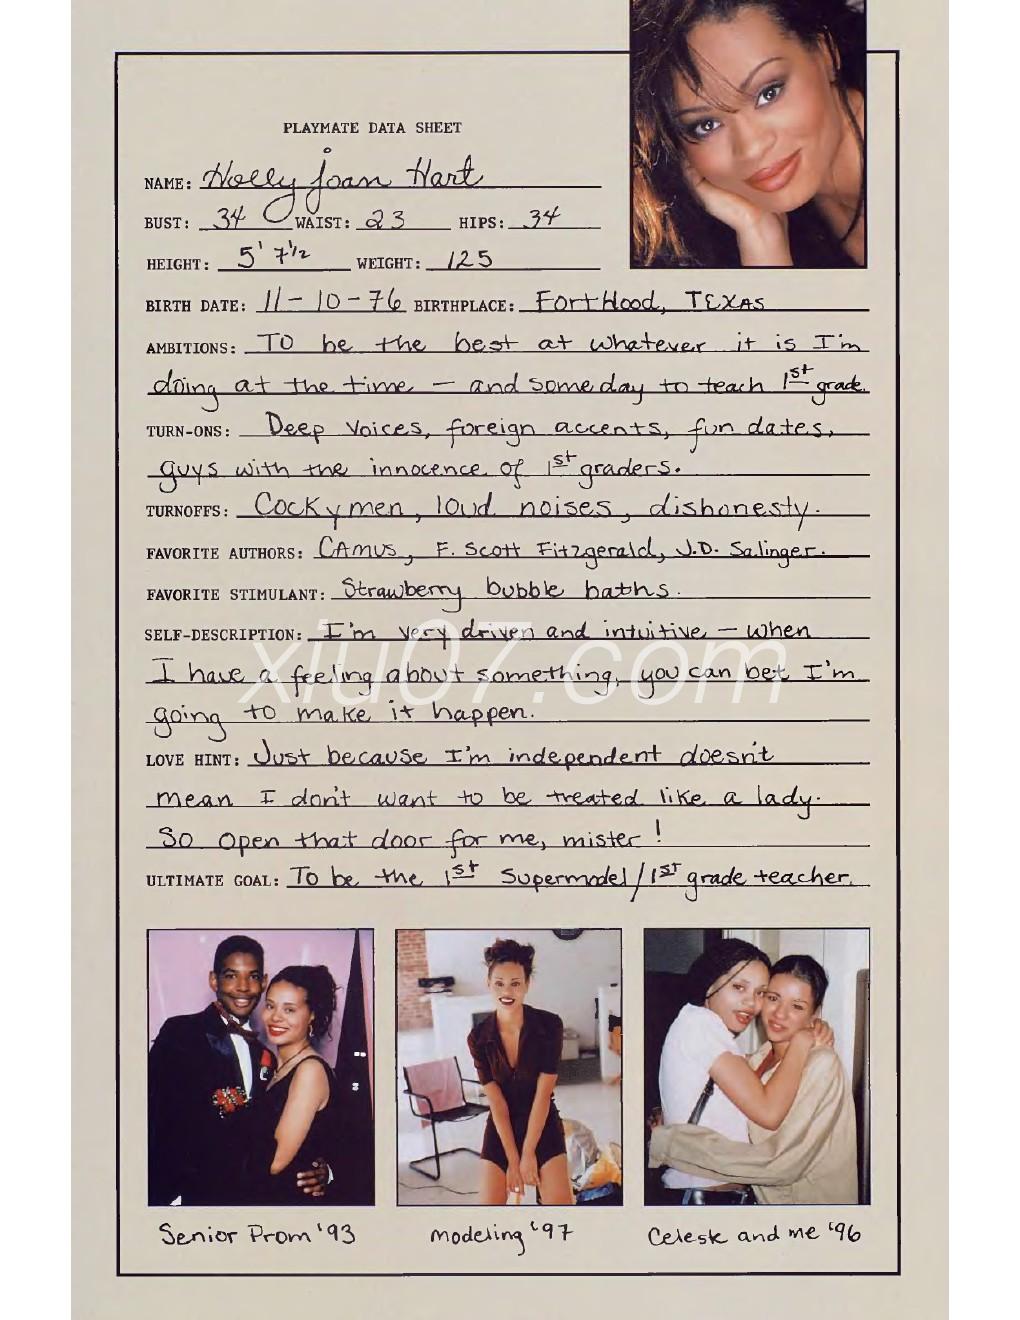 PLAYMATE DATA SHEET
NAME: Holly Joan Hart
BUST: 34 WAIST: 23 HIPS: 34
HEIGHT: 5' 7½ WEIGHT: 125
BIRTH DATE: 11-10-76 BIRTHPLACE: Fort Hood, TEXAS
AMBITIONS: To be the best at whatever it is I'm
doing at the time - and someday to teach 1st grade.
TURN-ONS: Deep Voices, foreign accents, fun dates,
guys with the innocence of 1st graders.
TURNOFFS: Cocky men, loud noises, dishonesty.
FAVORITE AUTHORS: CAMUS, F. Scott Fitzgerald, J.D. Salinger.
FAVORITE STIMULANT: Strawberry bubble baths.
SELF-DESCRIPTION: I'm very driven and intuitive - when
I have a feeling about something, you can bet I'm
xiu07.com
going to make it happen.
LOVE HINT: Just because I'm independent doesn't
mean I don't want to be treated like a lady.
So open that door for me, mister!
ULTIMATE GOAL: To be the 1st Supermodel/1st grade teacher.
Senior Prom '93
modeling '97
Celeste and me '96